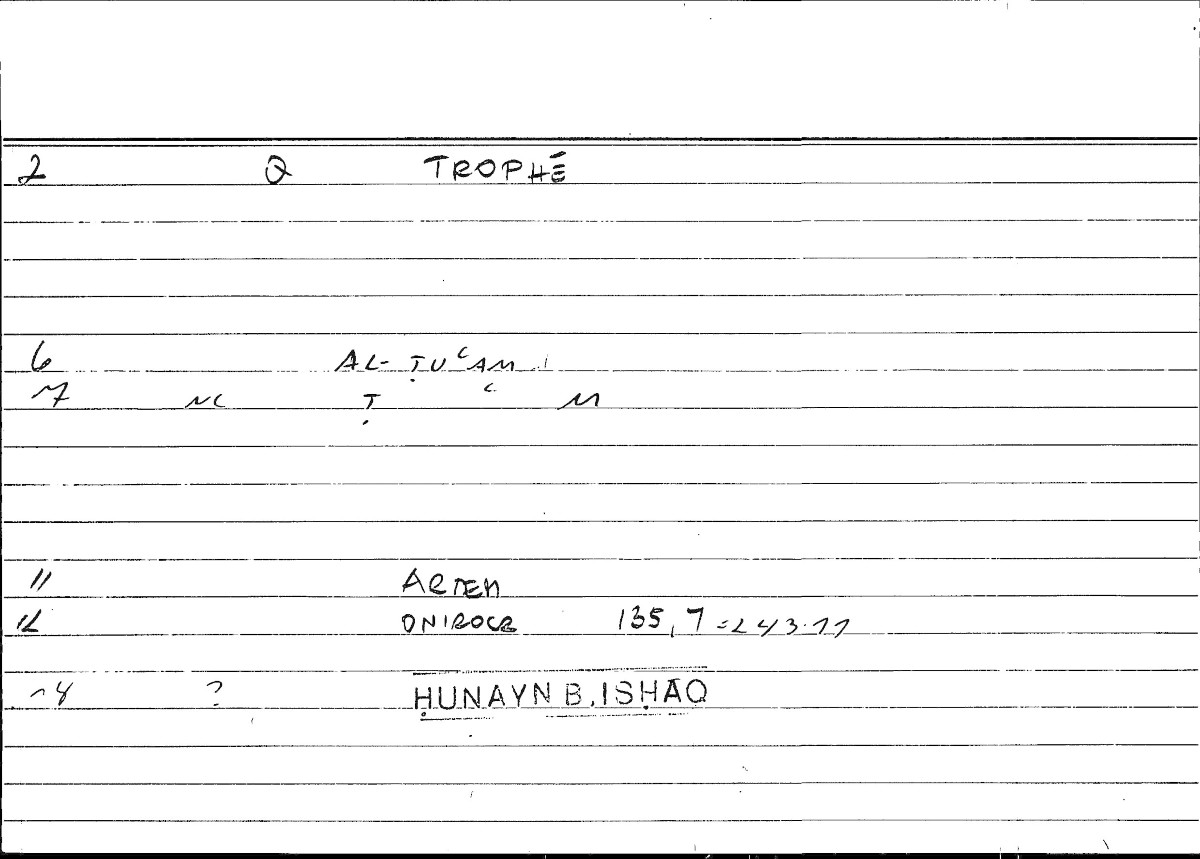 2 Q TROPHĒ
6 AL-ṬUʿAM
7 NC Ṭ ʿ M
11 ARTEM
12 ONIROCR 135,7=243.11
14 ? ḤUNAYN B. ISḤĀQ